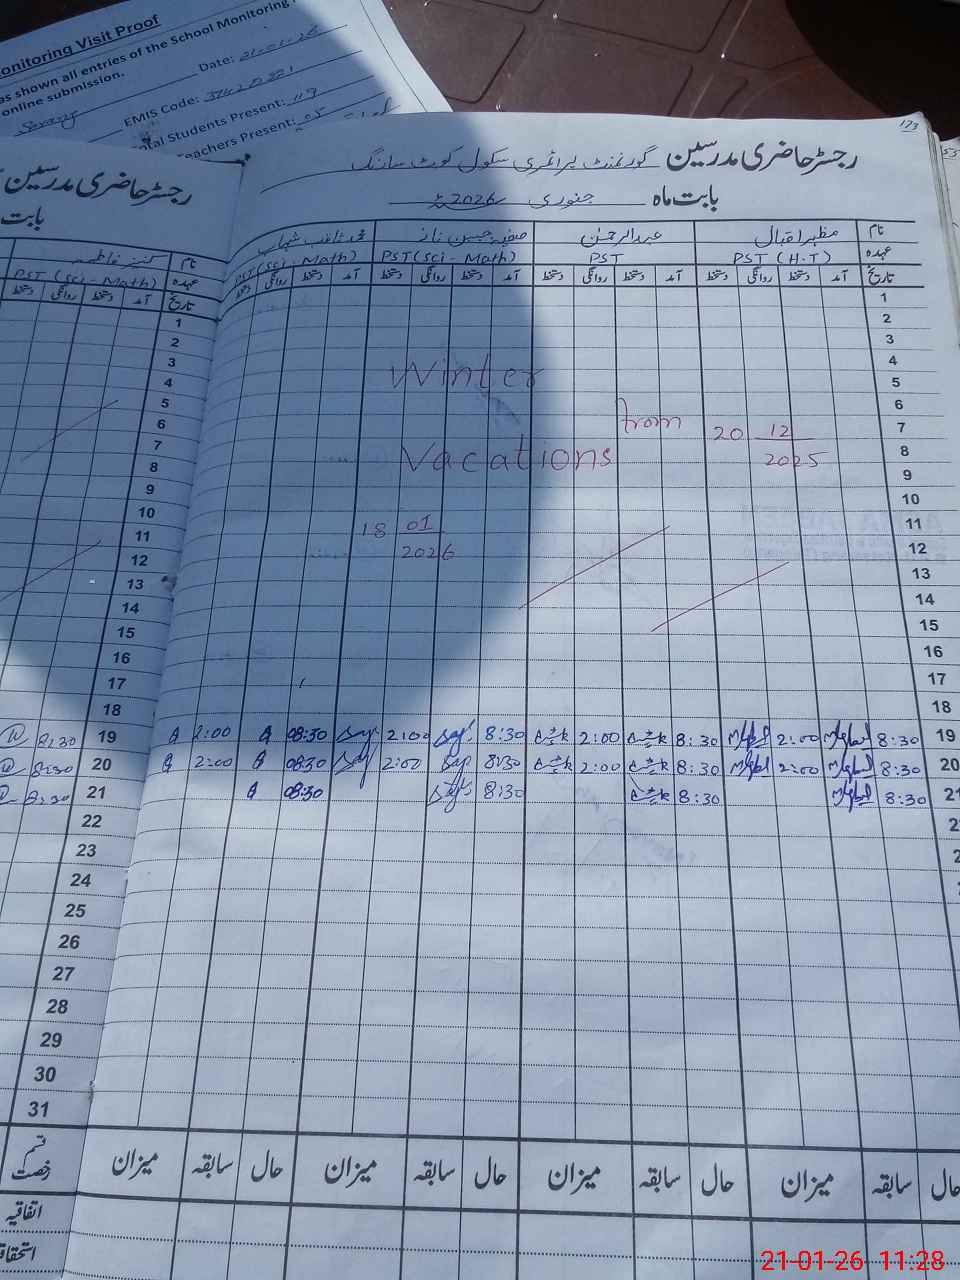 onitoring Visit Proof
as shown all entries of the School Monitoring
online submission.
Date: 21-01-26
EMIS Code:
ntal Students Present: 119
eachers Present: 05
173
رجسٹر حاضری مدرسین گورنمنٹ پرائمری سکول کوٹ سارنگ
بابت ماہ جنوری 2026ء
نام مظہر اقبال عبدالرحمٰن صفیہ جبین ناز محمد ثاقب شہاب
عہدہ PST (H.T) PST PST (Sci - Math) PST (Sci - Math)
تاریخ آمد دستخط روانگی دستخط آمد دستخط روانگی دستخط آمد دستخط روانگی دستخط آمد دستخط روانگی دستخط
رجسٹر حاضری مدرسین
بابت
نام کنیز فاطمہ
عہدہ PST (Sci - Math)
تاریخ آمد دستخط روانگی دستخط
1
2
3
4
5
6
7
8
9
10
11
12
13
14
15
16
17
18
19
20
21
22
23
24
25
26
27
28
29
30
31
Winter
Vacations from 20 12 2025
18 01 2026
1
2
3
4
5
6
7
8
9
10
11
12
13
14
15
16
17
18
19 8:30 2:00 8:30 2:00 8:30 2:00 08:30 2:00 8:30
20 8:30 2:00 8:30 2:00 8:30 2:00 08:30 2:00 8:30
21 8:30 8:30 8:30 08:30 8:30
قسم رخصت
اتفاقیہ
استحقاقی
حال سابقہ میزان حال سابقہ میزان حال سابقہ میزان حال سابقہ میزان
21-01-26 11:28